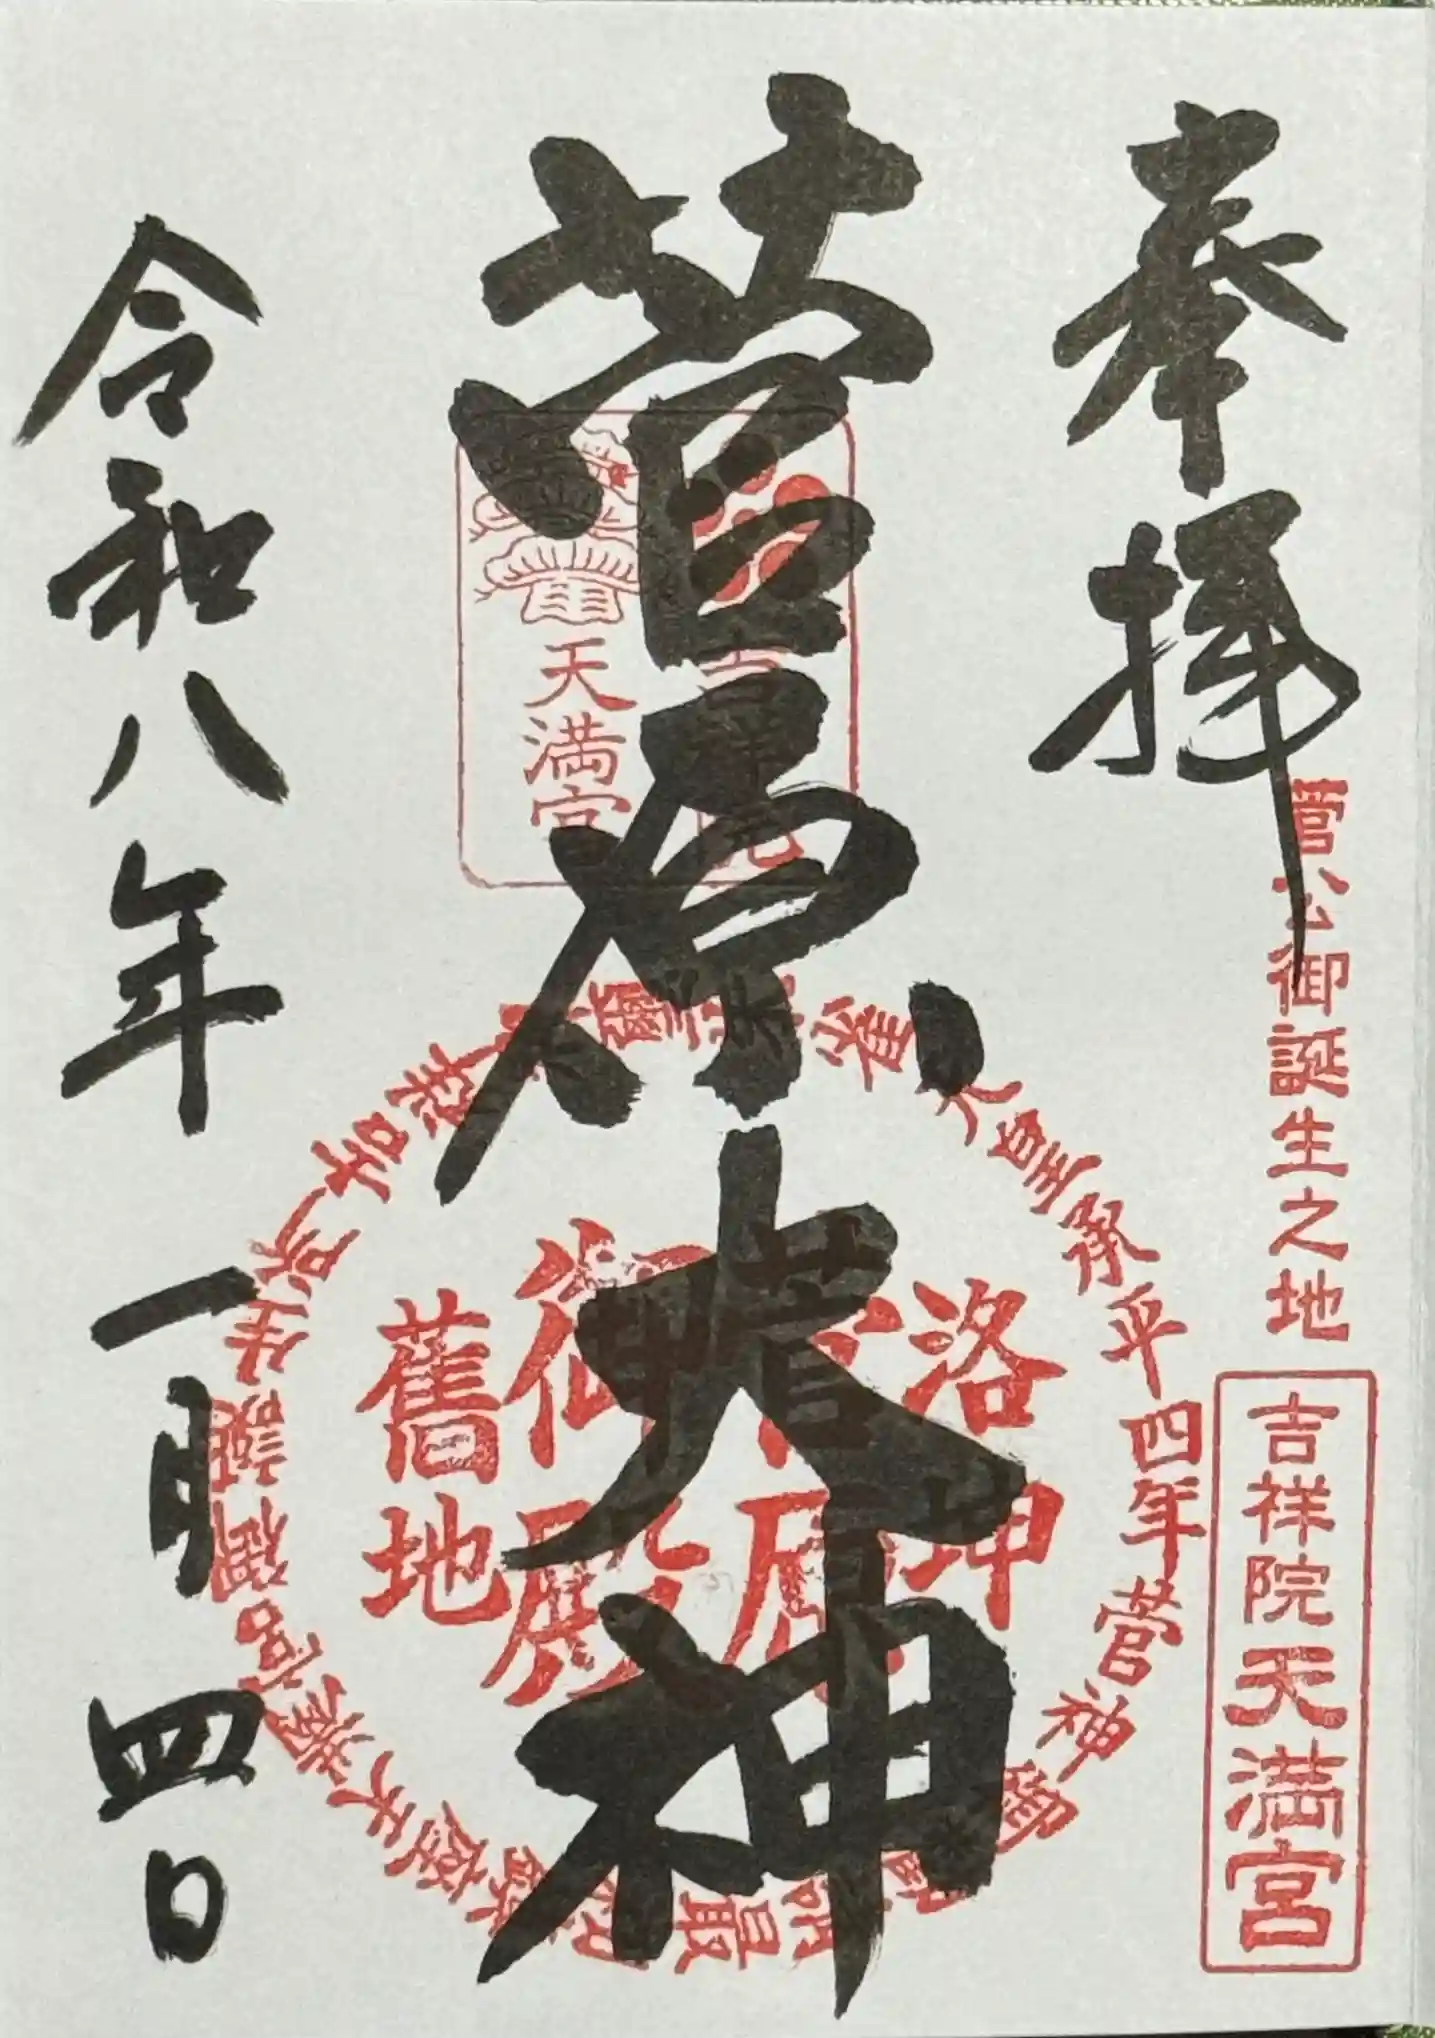 奉拝
菅公御誕生之地
吉祥院天満宮
菅原大神
天満宮
洛
坤
御
殿
舊地
雀天皇承平四年菅神
令和八年一月四日